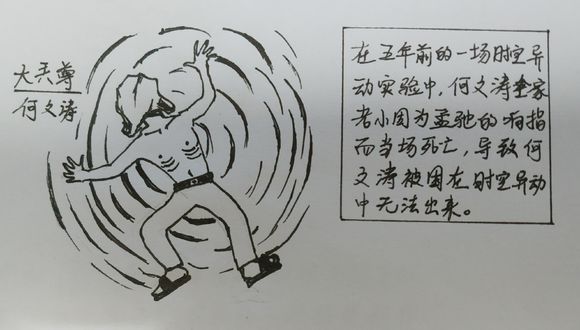 大天尊
何文涛
在五年前的一场时空异
动实验中，何文涛全家
老小因为孟驰的响指
而当场死亡，导致何
文涛被困在时空异动
中无法出来。